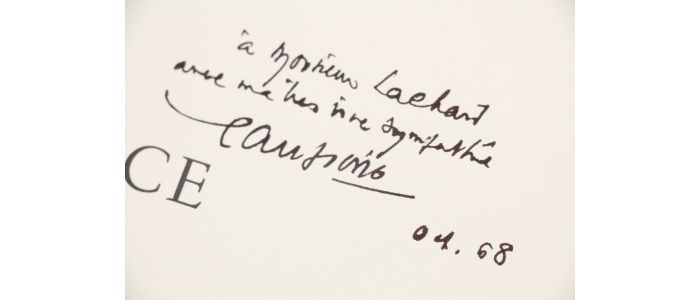 à Monsieur Lachard
avec ma très vive sympathie
oct. 68
CE